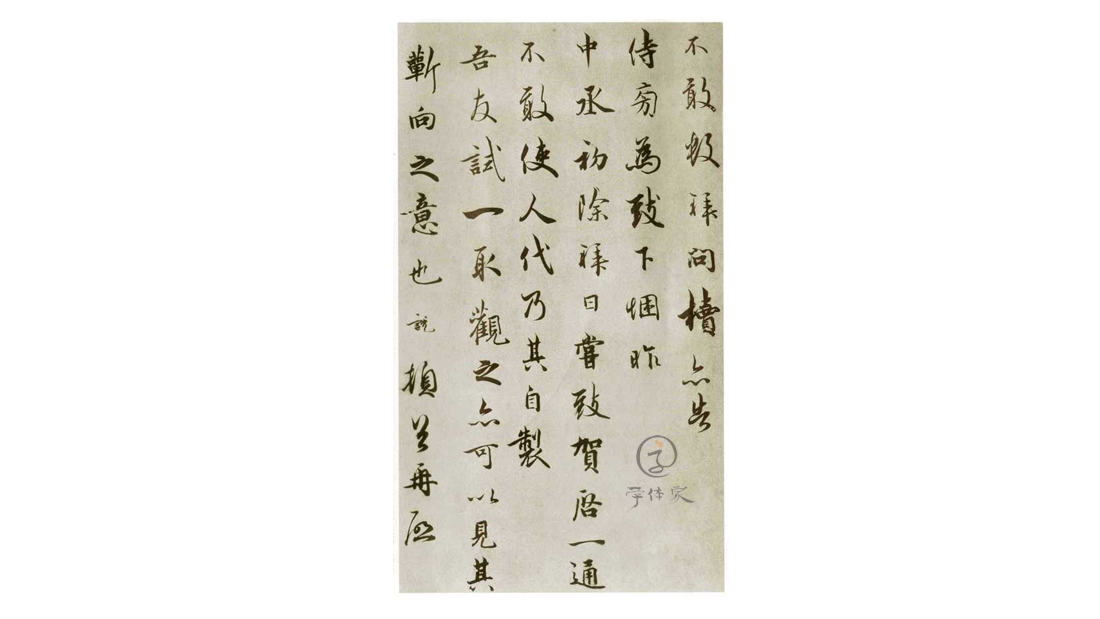 不敢數拜問犢亦告
侍旁為致下悃昨
中丞初除拜日嘗致賀啓一通
不敢使人代乃其自製
吾友試一取觀之亦可以見其
蘄向之意也說頓首再啟
字体家